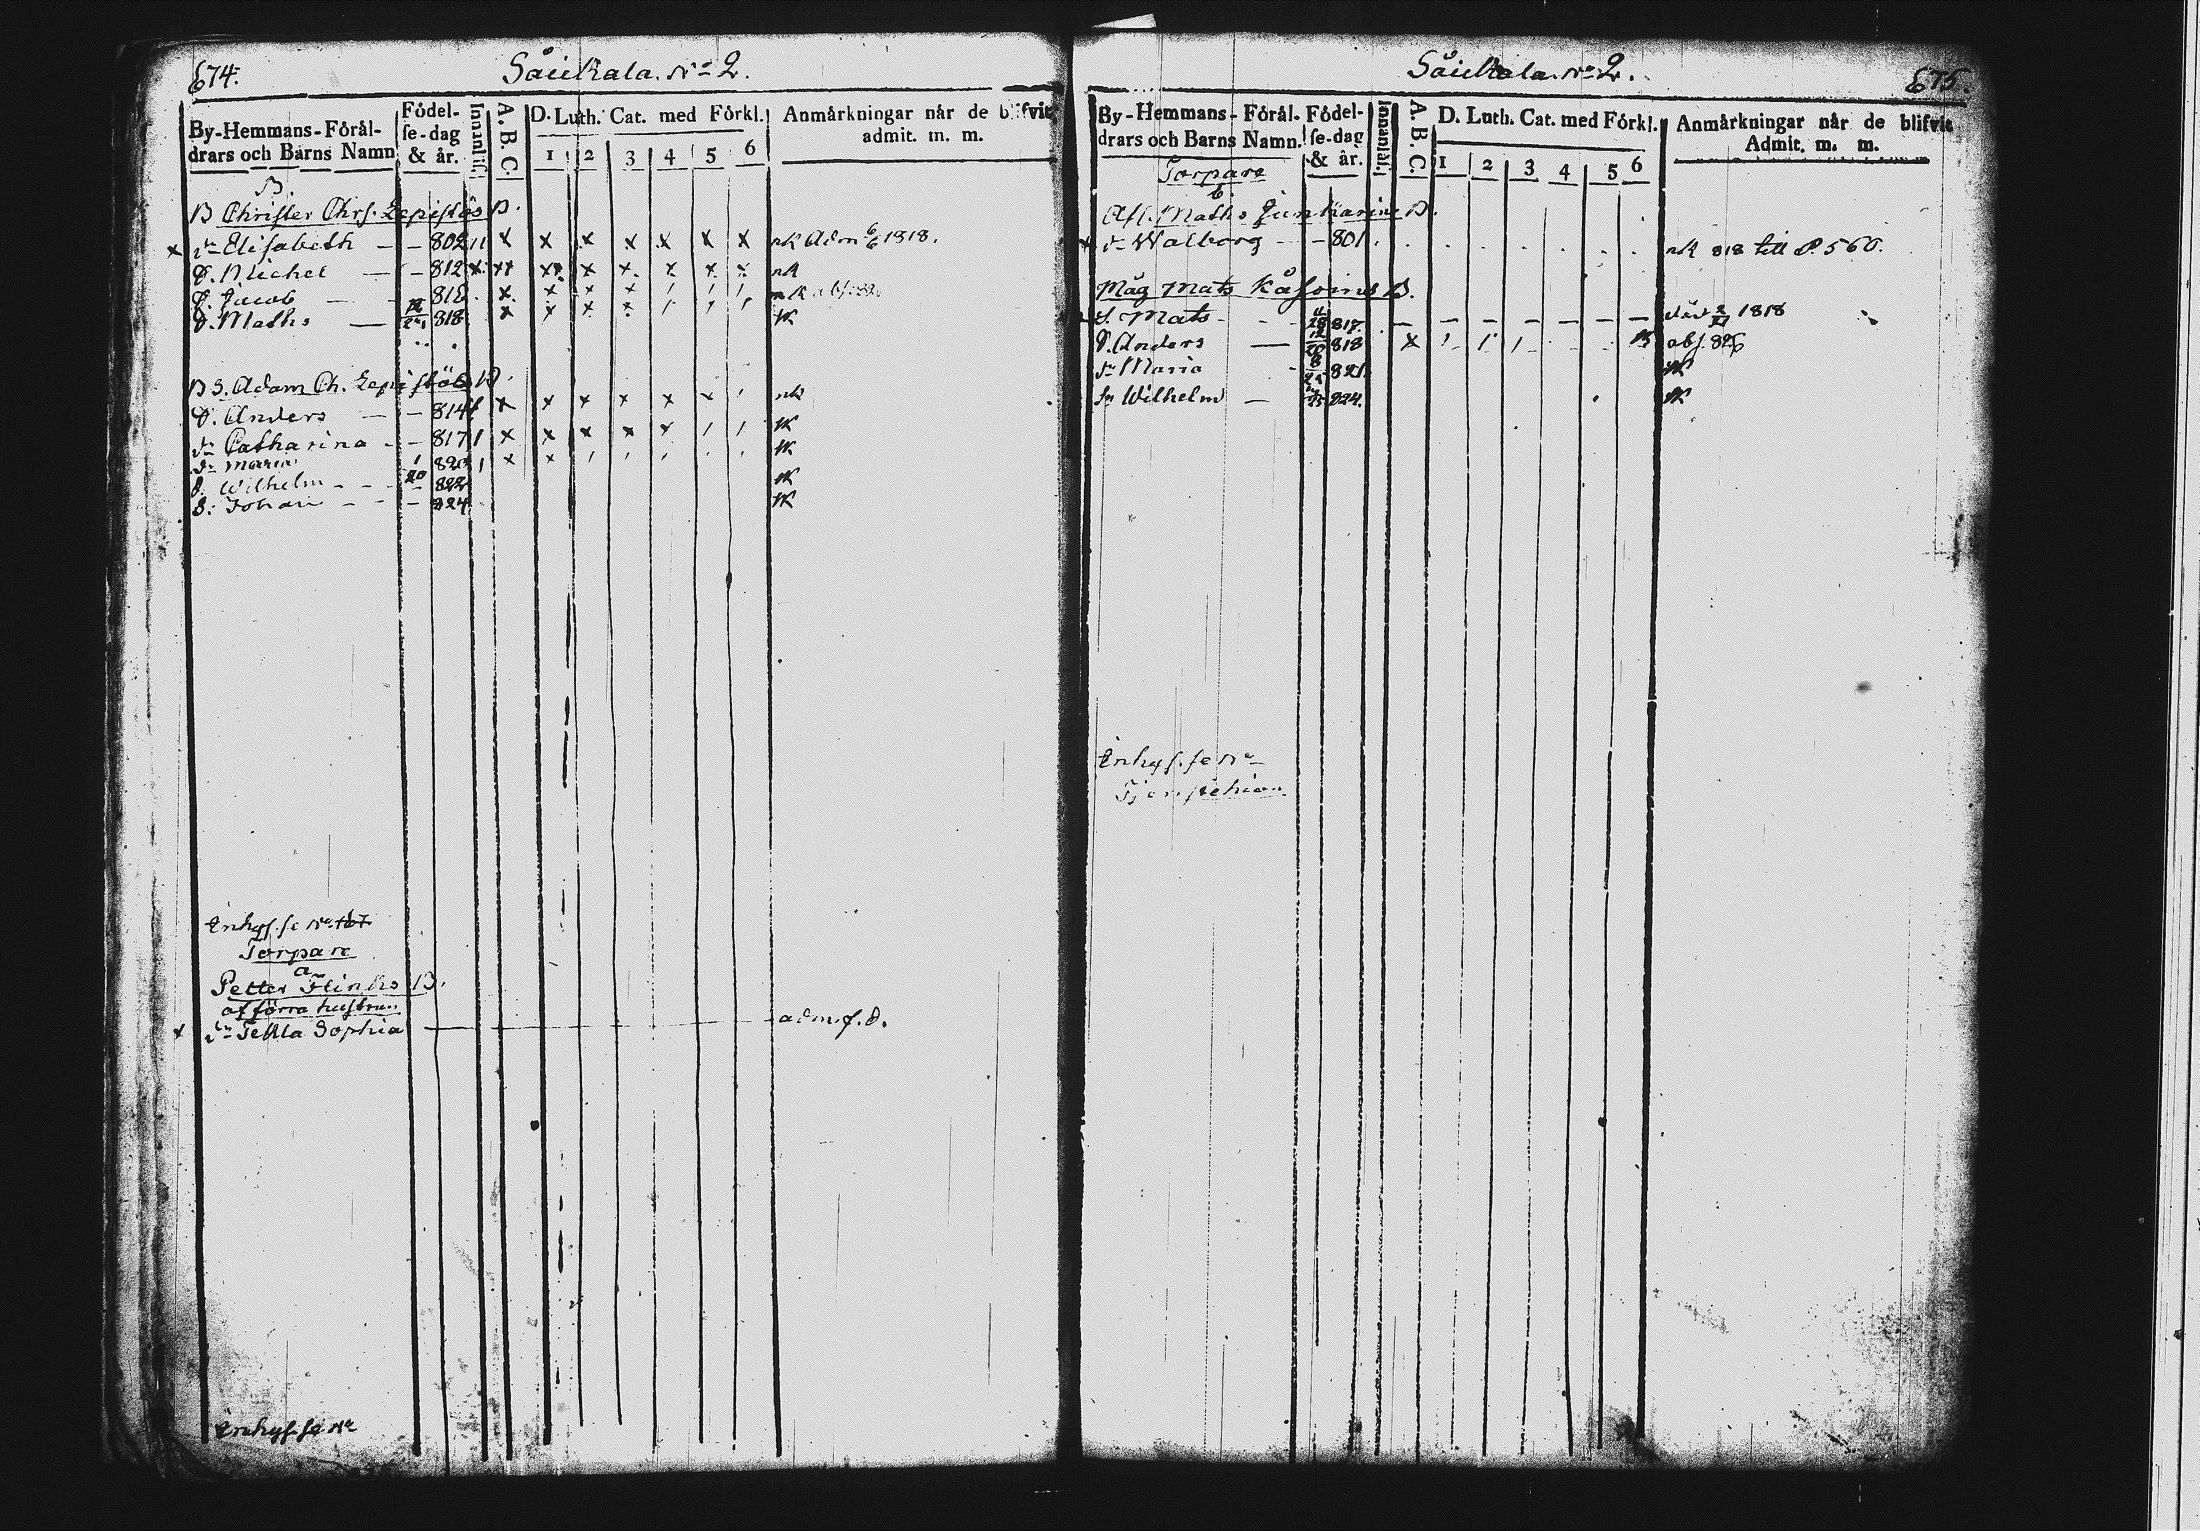 674.
Såukala. No 2.
By-Hemmans-Förål-
drars och Barns Namn
Födel-
se-dag
& år.
Innanläs.
A. B. C.
D. Luth. Cat. med Förkl.
1 2 3 4 5 6
Anmärkningar når de blifvit
admit. m. m.
B.
B Christer Chrs. Lepistös B.
x dr Elisabeth - - 802 11 x x x x x x x nk Adm 6/6 1818.
S. Michel - - 812 x xx xx x x x x x nk
S. Jacob - - 816 x x x x 1 1 1
S. Maths - 12/21 818 x x x 1 1 1 nk
B S. Adam Ch. Lepistös B.
S. Anders - - 814 x x x x x x 1 nk
dr Catharina - - 817 1 x x x x x 1 1 nk
dr Maria 1/20 820 1 x x 1 1 1 nk
S. Wilhelm - - - 822 nk
S. Johan - - - 824 nk
Inhys. se No 167
Torpare
a
Petter Flinks B.
af förra hustrun
x dr Tekla Sophia adm. f. d.
Inhys. se No
675.
Såukala. No 2.
By-Hemmans-Förål-
drars och Barns Namn.
Födel-
se-dag
& år.
Innanläs.
A. B. C.
D. Luth. Cat. med Förkl.
1 2 3 4 5 6
Anmärkningar når de blifvit
Admit. m. m.
Torpare
b.
Afl. Maths Junkarins B.
x dr Walborg - - 801. nk 818 till P. 560.
Måg Mats Kåsoins B.
S. Mats - - - 817 - - - - - - 1818
S. Anders - 12/20 818 x 1 1 1 abs. 826
dr Maria - 821 nk
Sn Wilhelm - 824. nk
Inhys. se No